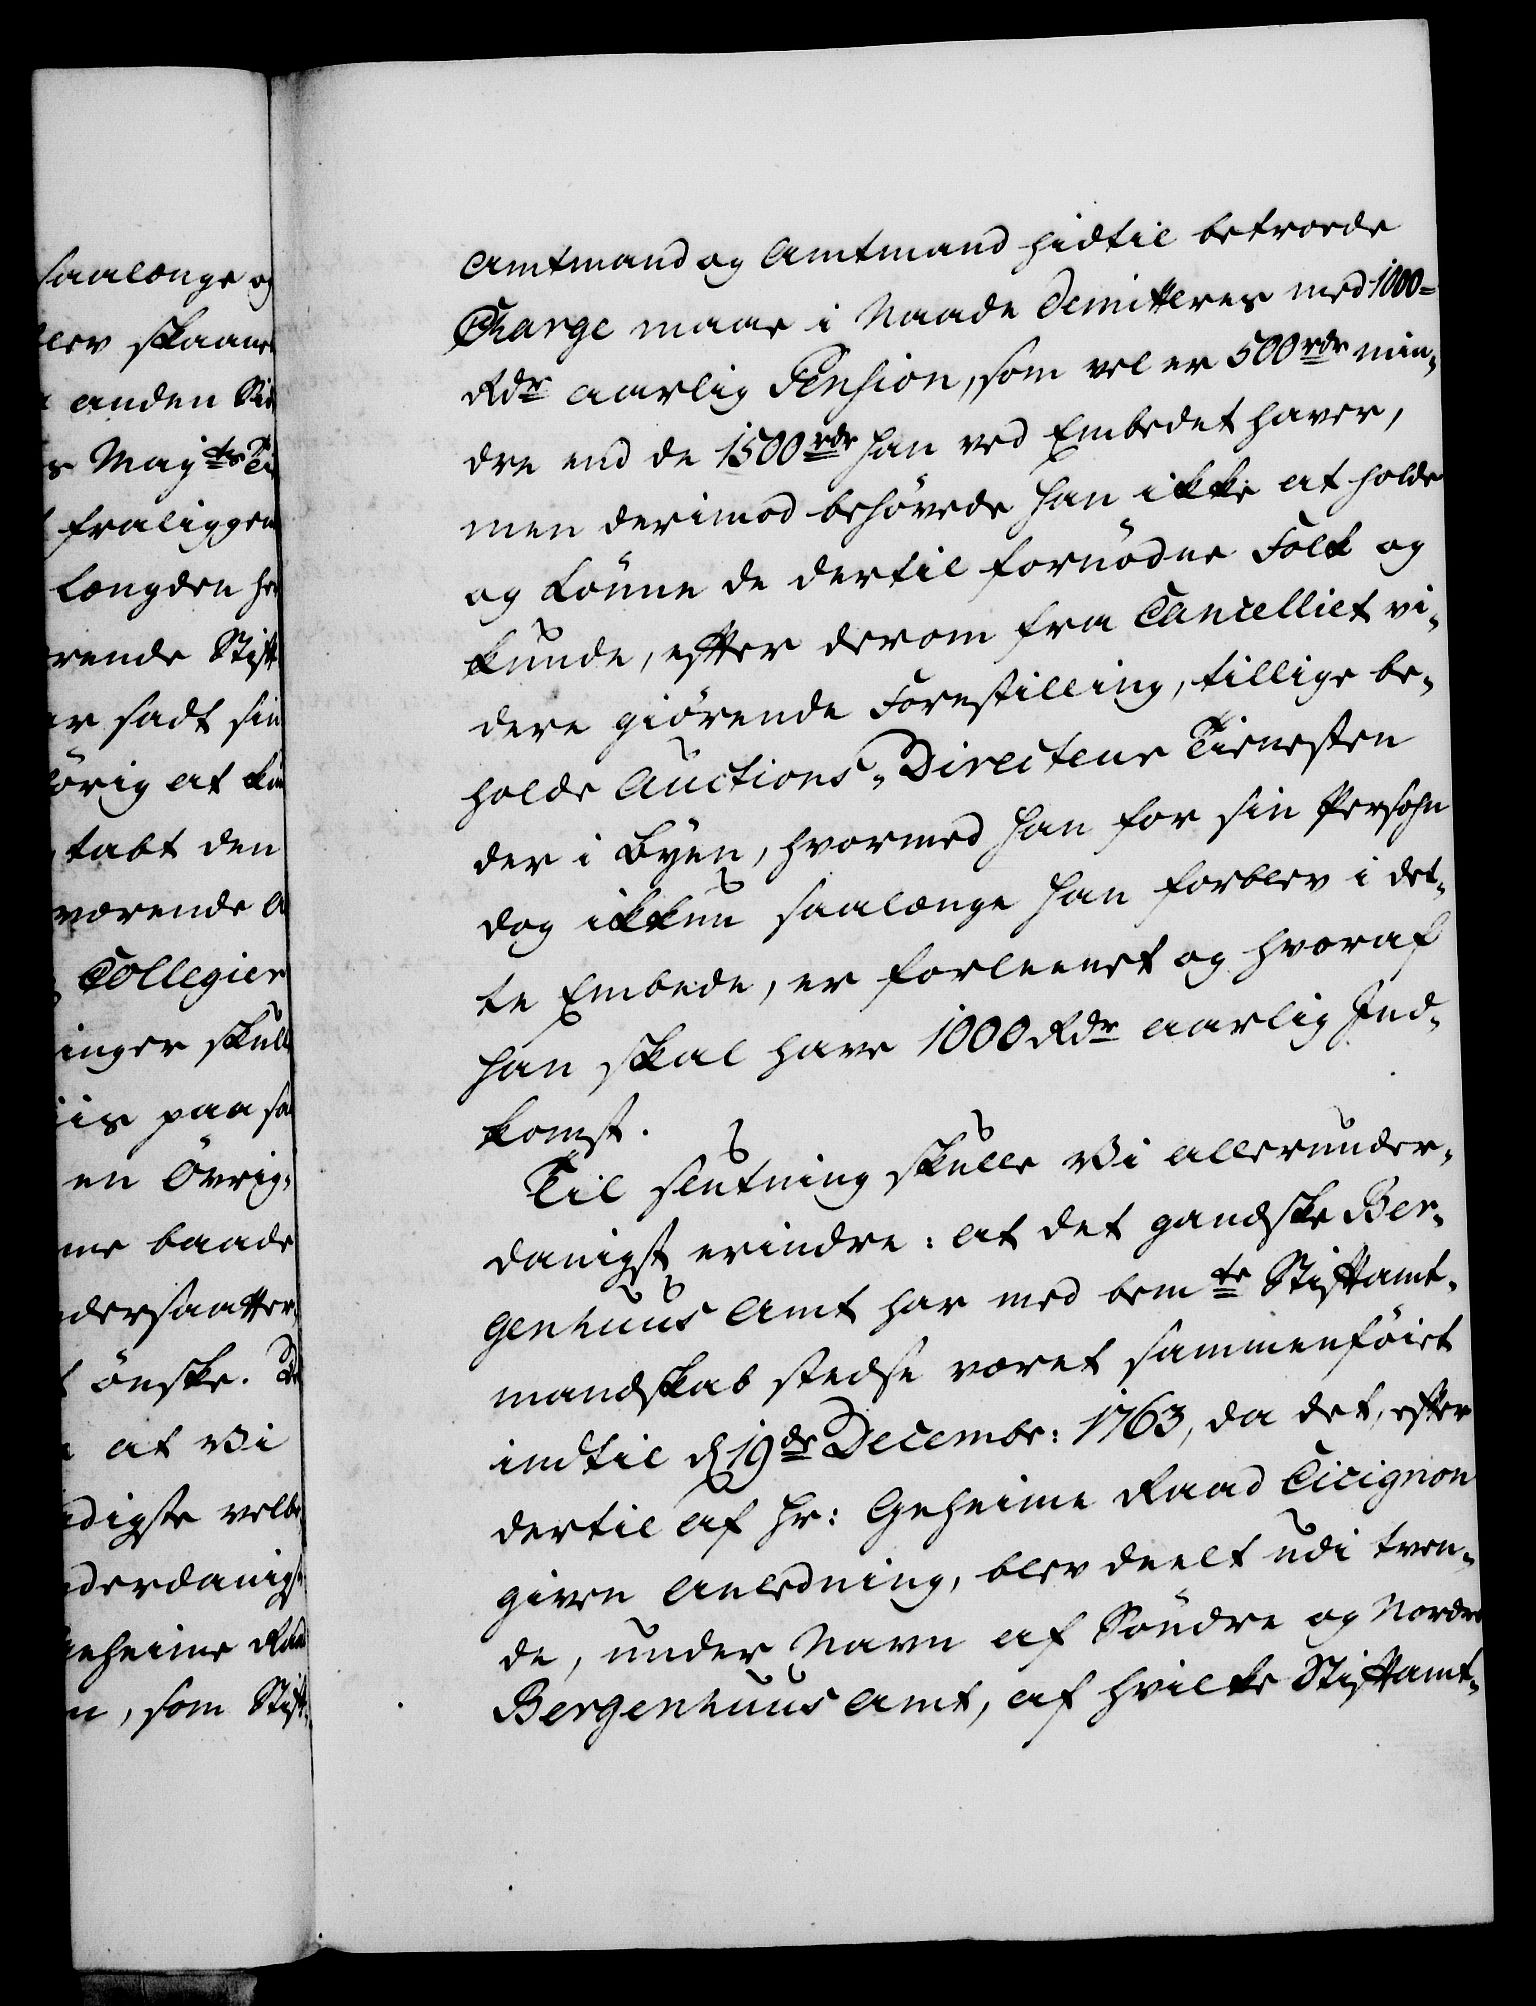 saalænge og
lev skaane
anden Sid
s Majts Ti
fraliggen
Længden he
rende Stift
er sadt sin
örig at kun
tabt den
værende A
Collegier
inger skull
iis paa sa
en Övrig-
me baade
dersaatter,
t önske. De
at Vi
digste velbe
derdanigst
Geheime Raad
n, som Stift-
Amtmand og Amtmand hidtil betroede
Charge maae i Naade demitteres med 1000=
Rdr aarlig Pension, som vel er 500 rdr min-
dre end de 1500 rdr han ved Embedet haver,
men derimod behövede han ikke at holde
og Lönne de dertil fornödne Folk og
kunde, efter derom fra Cancelliet vi-
dere giörende Forestilling, tillige be-
holde Auctions-Directeur Tienesten
der i Byen, hvormed han for sin Persohn
dog ikkun saalænge han forblev i det-
te Embede, er forleenet og hvoraf
han skal have 1000 Rdr aarlig Ind-
komst.
Til slutning skulle Vi allerunder-
danigst erindre: at det gandske Ber-
genhuus Amt har med bemte Stiftamt-
mandskab stedse været sammenföiet
indtil d 19de Decembr: 1763, da det, efter
dertil af Hr: Geheime Raad Cicignon
given Anledning, blev deelt udi tven-
de, under Navn af Söndre og Nordre
Bergenhuus Amt, af hvilke Stiftamt-